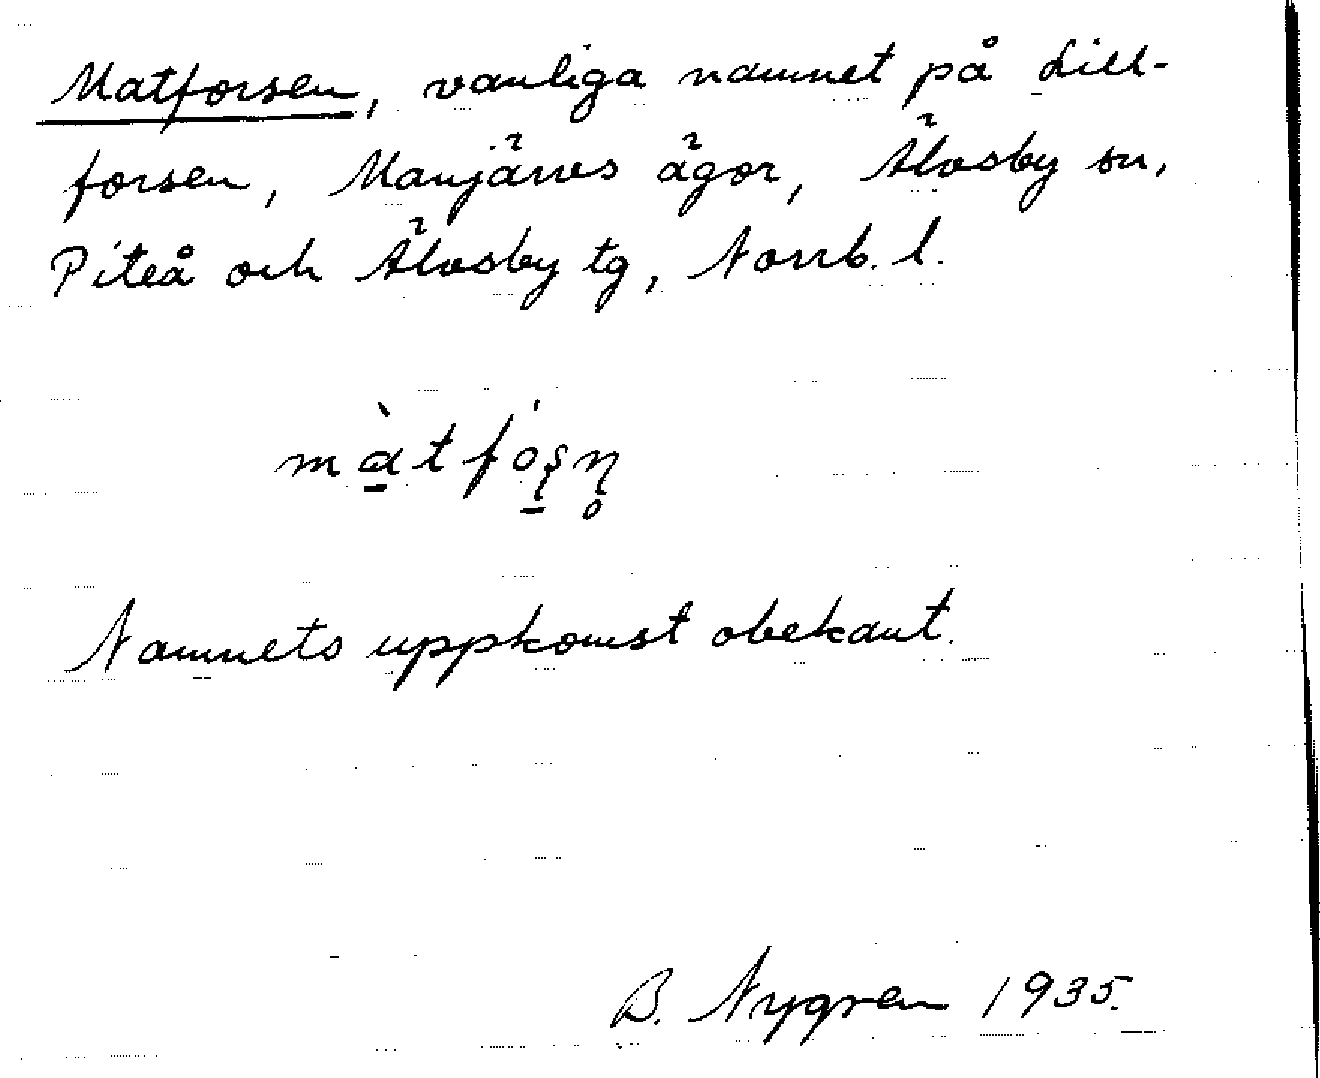 Matforsen, vanliga namnet på Lill-
forsen, Manjärvs ägor, Älvsby sn,
Piteå och Älvsby tg, Norrb. l.
màtfó̱ʂṇ̥
Namnets uppkomst obekant.
B. Nygren 1935.